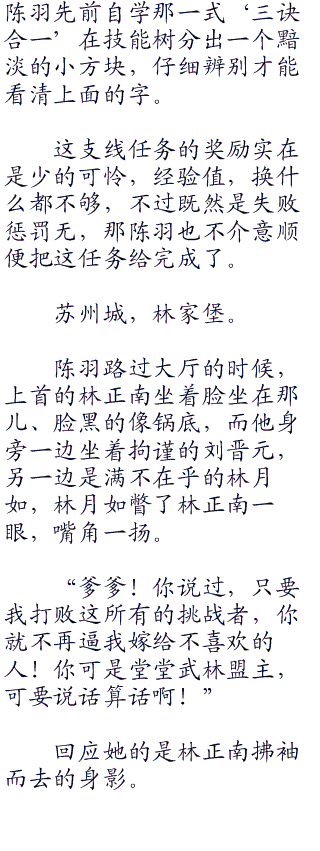 陈羽先前自学那一式‘三诀
合一’在技能树分出一个黯
淡的小方块，仔细辨别才能
看清上面的字。
这支线任务的奖励实在
是少的可怜，经验值，换什
么都不够，不过既然是失败
惩罚无，那陈羽也不介意顺
便把这任务给完成了。
苏州城，林家堡。
陈羽路过大厅的时候，
上首的林正南坐着脸坐在那
儿、脸黑的像锅底，而他身
旁一边坐着拘谨的刘晋元，
另一边是满不在乎的林月
如，林月如瞥了林正南一
眼，嘴角一扬。
“爹爹！你说过，只要
我打败这所有的挑战者，你
就不再逼我嫁给不喜欢的
人！你可是堂堂武林盟主，
可要说话算话啊！”
回应她的是林正南拂袖
而去的身影。